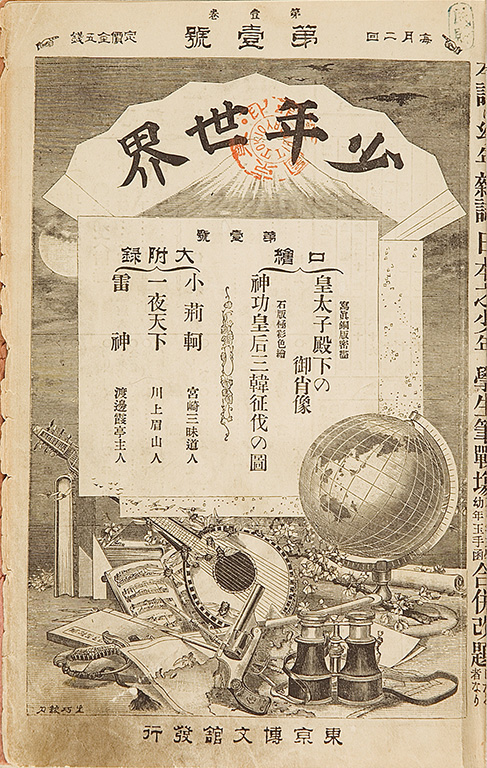 第壹卷
第壹號
每月二回
定價金五錢
少年世界
第壹號
口繪
寫眞銅版密畫
皇太子殿下の御肖像
石版極彩色繪
神功皇后三韓征伐の圖
大附錄
小荊軻 宮崎三昧道人
一夜天下 川上眉山人
雷神 渡邊霞亭主人
東京博文館發行
本誌は幼年雜誌日本之少年學生筆戰場幼年玉手函合併改題